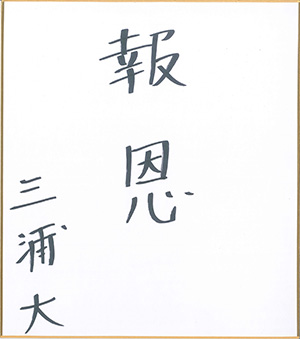 報恩
三浦大